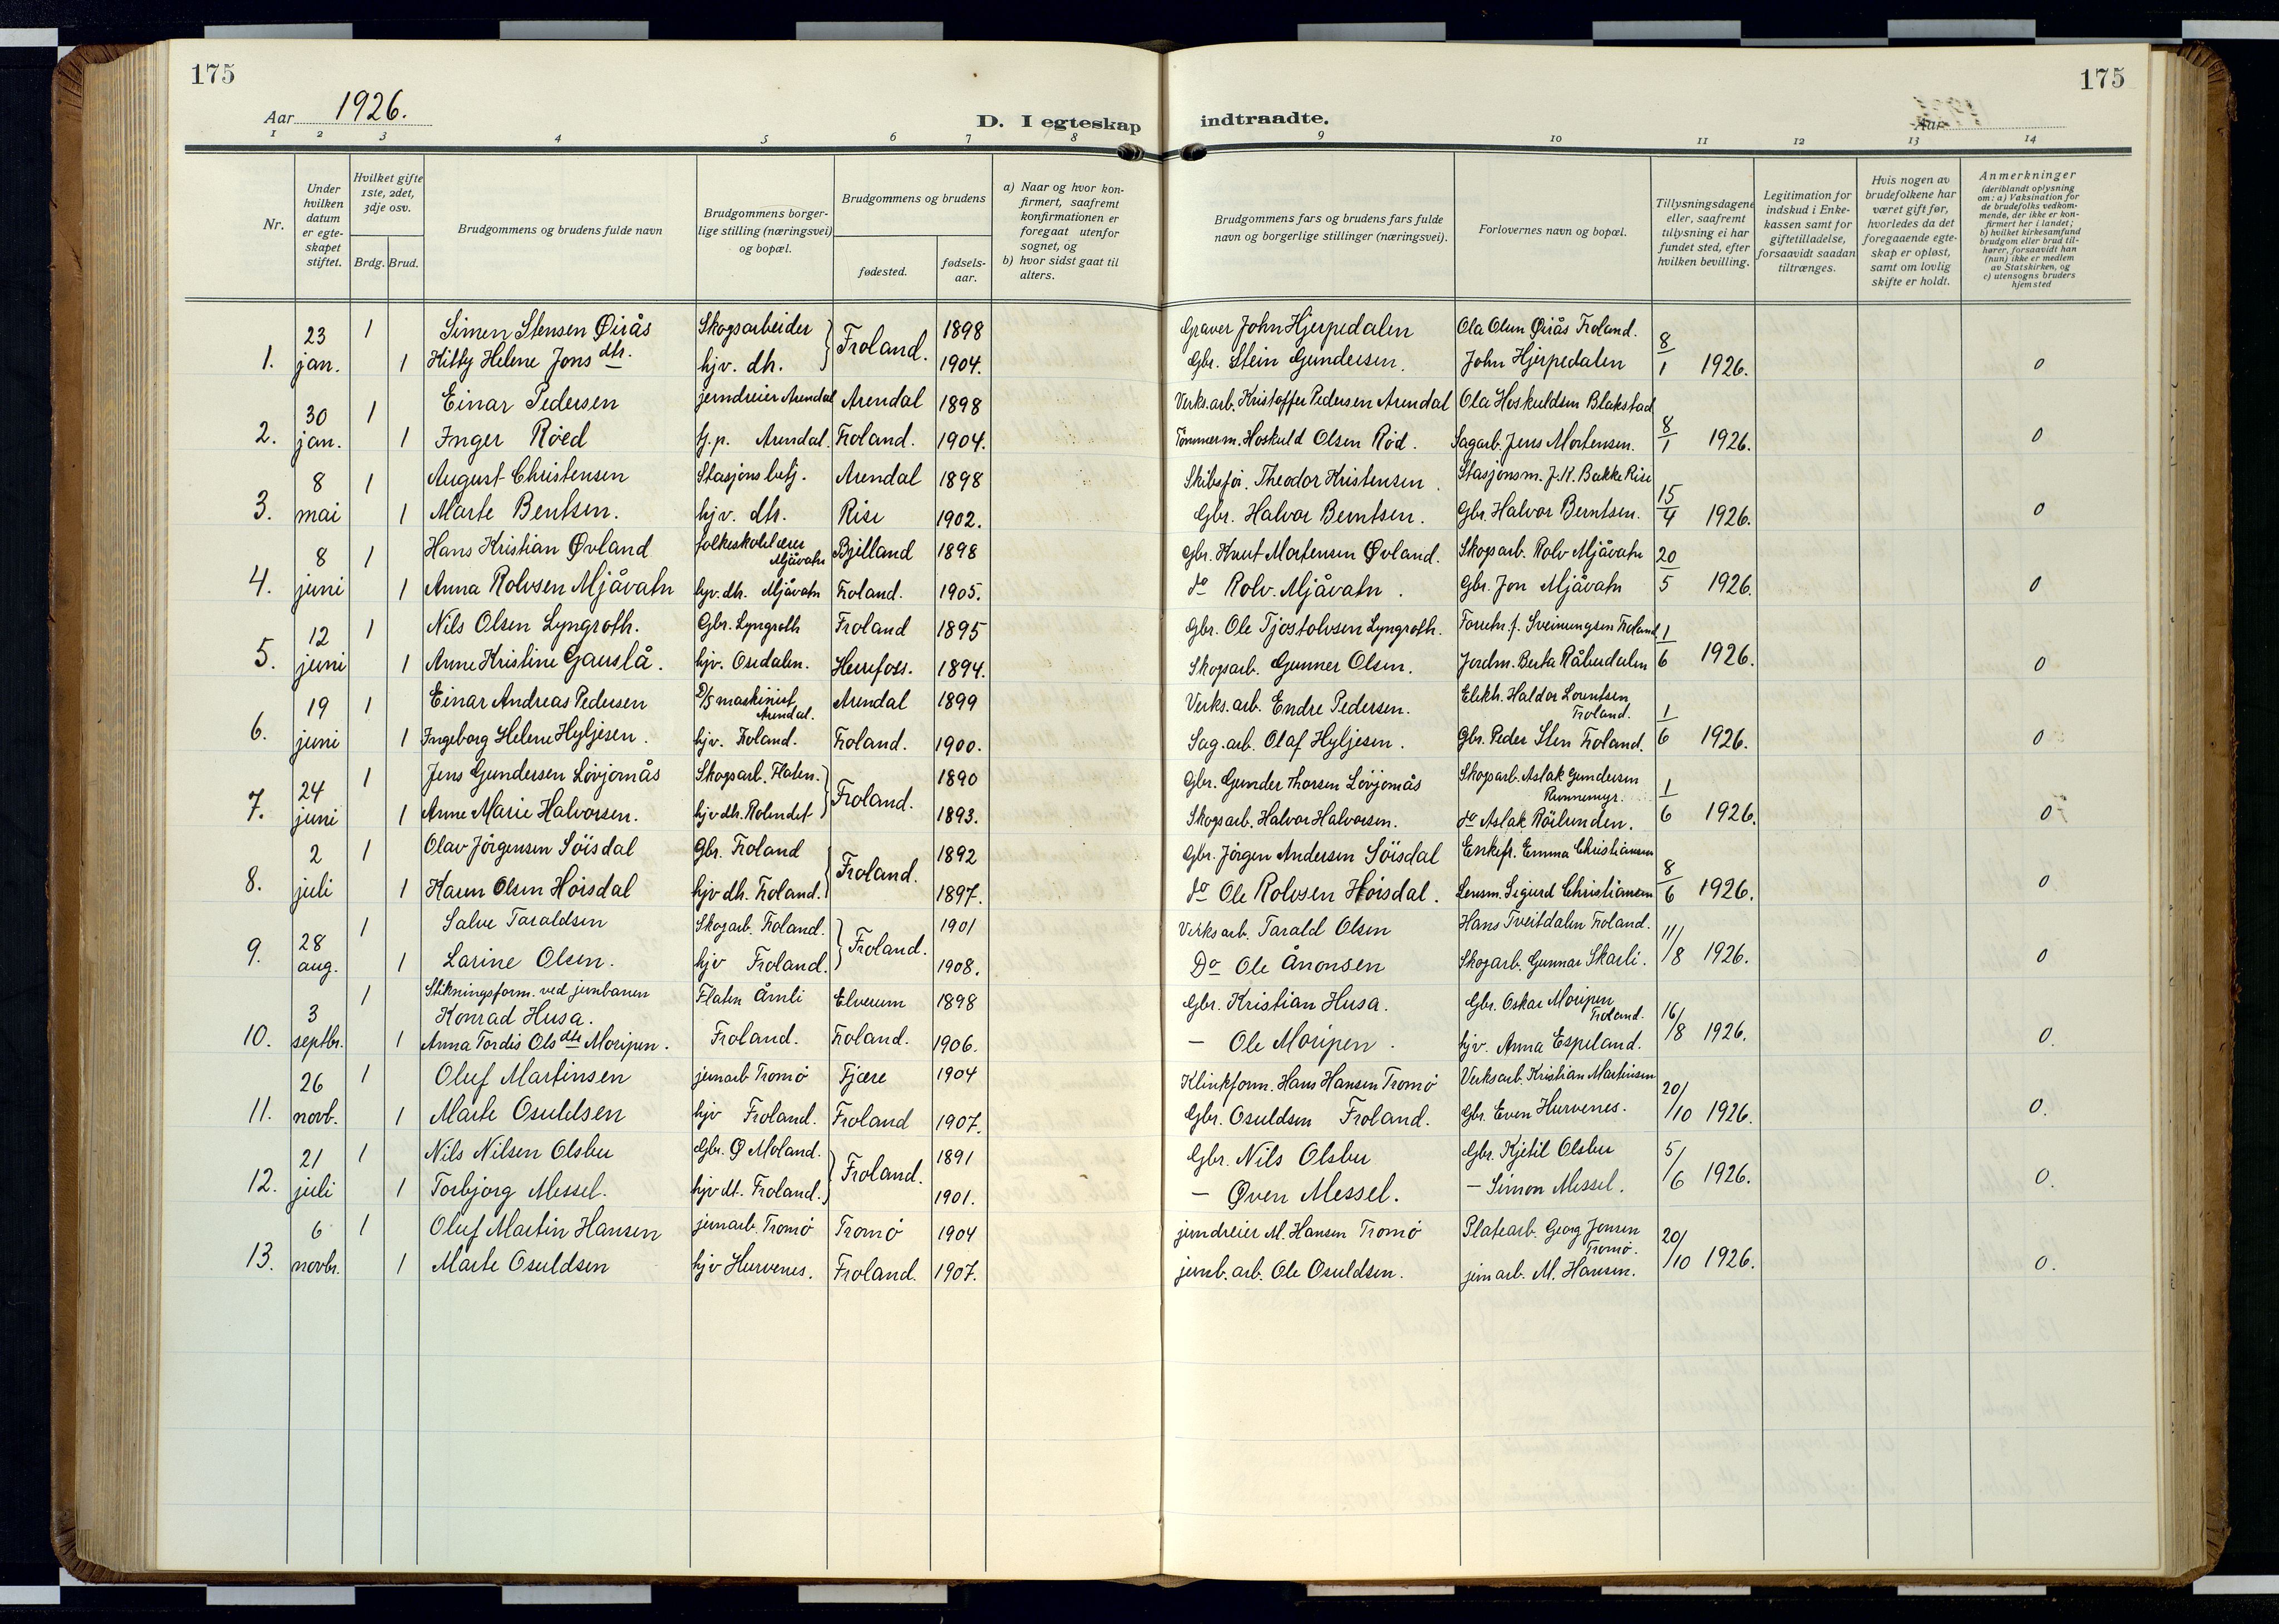 175
175
Aar 1926.
D. I egteskap indtraadte.
Aar
1 2 3 4 5 6 7 8 9 10 11 12 13 14
Nr.
Under hvilken datum er egteskapet stiftet.
Hvilket gifte 1ste, 2det, 3dje osv.
Brdg. Brud.
Brudgommens og brudens fulde navn
Brudgommens borgerlige stilling (næringsvei) og bopæl.
Brudgommens og brudens
fødested.
fødselsaar.
a) Naar og hvor konfirmert, saafremt konfirmationen er foregaat utenfor sognet, og
b) hvor sidst gaat til alters.
Brudgommens fars og brudens fars fulde navn og borgerlige stillinger (næringsvei).
Forlovernes navn og bopæl.
Tillysningsdagene eller, saafremt tillysning ei har fundet sted, efter hvilken bevilling.
Legitimation for indskud i Enkekassen samt for giftetilladelse, forsaavidt saadan tiltrænges.
Hvis nogen av brudefolkene har været gift før, hvorledes da det foregaaende egteskap er opløst, samt om lovlig skifte er holdt.
Anmerkninger
(deriblandt oplysning om: a) Vaksination for de brudefolks vedkommende, der ikke er konfirmert her i landet; b) hvilket kirkesamfund brudgom eller brud tilhører, forsaavidt han (hun) ikke er medlem av Statskirken, og c) utensogns bruders hjemsted
23 1 Simen Stensen Øirås Skogsarbeider Froland. 1898 Graver John Hjerpedalen Ola Olsen Øirås Froland. 8
1. jan. 1 Kitty Helene Jons dtr. hjv. dtr. 1904. Gbr. Stein Gundersen. John Hjerpedalen 1 1926. 0
30 1 Einar Pedersen jerndreier Arendal Arendal 1898 Verks.arb. Kristoffer Pedersen Arendal Ola Hoskuldsen Blakstad 8
2. jan. 1 Inger Røed tj.p. Arendal. Froland. 1904. Tömmerm. Hoskuld Olsen Rød. Sagarb. Jens Mortensen. 1 1926. 0
8 1 August Christensen Stasjonsbetj. Arendal 1898 Skibsfør. Theodor Kristensen. Stasjonsm. J.K. Bakke Rise 15
3. mai 1 Marte Bentsen. hjv. dtr. Rise 1902. Gbr. Halvor Berntsen. Gbr. Halvor Berntsen. 4 1926. 0
8 1 Hans Kristian Øvland folkeskolelærer Mjåvatn Bjelland 1898 Gbr. Knut Mortensen Øvland. Skogsarb. Rolv Mjåvatn 20
4. juni 1 Anna Rolvsen Mjåvatn hjv. dtr. Mjåvatn Froland. 1905. do Rolv Mjåvatn. Gbr. Jon Mjåvatn 5 1926. 0
12 1 Nils Olsen Lyngroth. Gbr. Lyngroth Froland 1895 Gbr. Ole Tjostolvsen Lyngroth. Forretn.f. Sveinungsen Froland 1
5. juni 1 Anne Kristine Gauslå. hjv. Osedalen. Herefoss. 1894. Skogsarb. Gunner Olsen. Jordm. Berta Råbudalen 6 1926. 0
19 1 Einar Andreas Pedersen D/S maskinist Arendal. Arendal 1899 Verks.arb. Endre Pedersen. Elektr. Haldor Lorentsen Froland. 1
6. juni 1 Ingeborg Helene Hyljesen. hjv. Froland. Froland. 1900. Sag.arb. Olaf Hyljesen. Gbr. Peder Sten Froland. 6 1926. 0
24 1 Jens Gundersen Lövjomås Skogsarb. Flaten. Froland. 1890 Gbr. Gunder Thorsen Lövjomås Skogsarb. Aslak Gundersen Runnemyr. 1
7. juni 1 Anne Marie Halvorsen. hjv dtr. Rolendet 1893. Skogsarb. Halvor Halvorsen. do Aslak Röilunden. 6 1926. 0
2 1 Olav Jörgensen Söisdal Gbr. Froland Froland. 1892 Gbr. Jörgen Andersen Söisdal Enkefr. Emma Christiansen 8
8. juli 1 Karen Olsen Höisdal hjv dtr. Froland. 1897. do Ole Rolvsen Höisdal. Lensm. Sigurd Christiansen 6 1926. 0
28 1 Salve Taraldsen Skogarb. Froland. Froland. 1901 Verksarb. Tarald Olsen Hans Tveitdalen Froland. 11/
9. aug. 1 Larine Olsen. hjv Froland. 1908. Do Ole Ånonsen Skogarb. Gunnar Skarli. /8 1926. 0
3 1 Stikningsform. ved jernbanen Konrad Husa. Flaten Åmli Elverum 1898 Gbr. Kristian Husa. Gbr. Oskar Moripen Froland. 16/
10. septbr. 1 Anna Tordis Olsdtr Moripen. Froland. Froland. 1906. — Ole Moripen. hjv. Anna Espeland. /8 1926. 0.
26 1 Oluf Martinsen jernarb Tromö Fjære 1904 Klinkform. Hans Hansen Tromö Verksarb. Kristian Martinsen 20/
11. novb. 1 Marte Osuldsen hjv Froland. Froland 1907. Gbr. Osuldsen Froland. Gbr. Even Hurvenes. /10 1926. 0.
21 1 Nils Nilsen Olsbu Gbr. Ø Moland. Froland. 1891 Gbr. Nils Olsbu Gbr. Kjetil Olsbu 5/
12. juli 1 Torbjorg Messel. hjv dt. Froland. 1901. — Øven Messel. — Simon Messel. /6 1926. 0.
6 1 Oluf Martin Hansen jernarb. Tromö Tromö 1904 jerndreier M. Hansen Tromö Platearb. Georg Jensen Tromö. 20/
13. novbr. 1 Marte Osuldsen hjv Hurvenes. Froland. 1907. jernb.arb. Ole Osuldsen. jernarb. M. Hansen. /10 1926. 0.